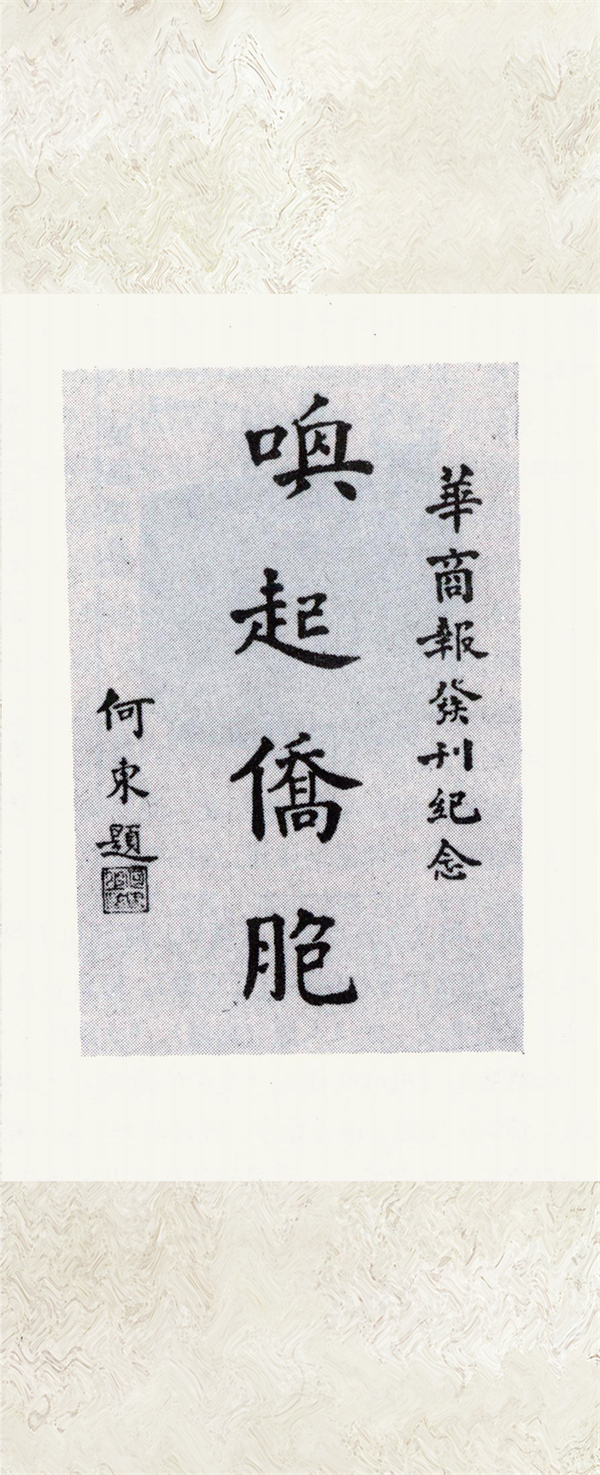 華商報發刊紀念
喚起僑胞
何東題